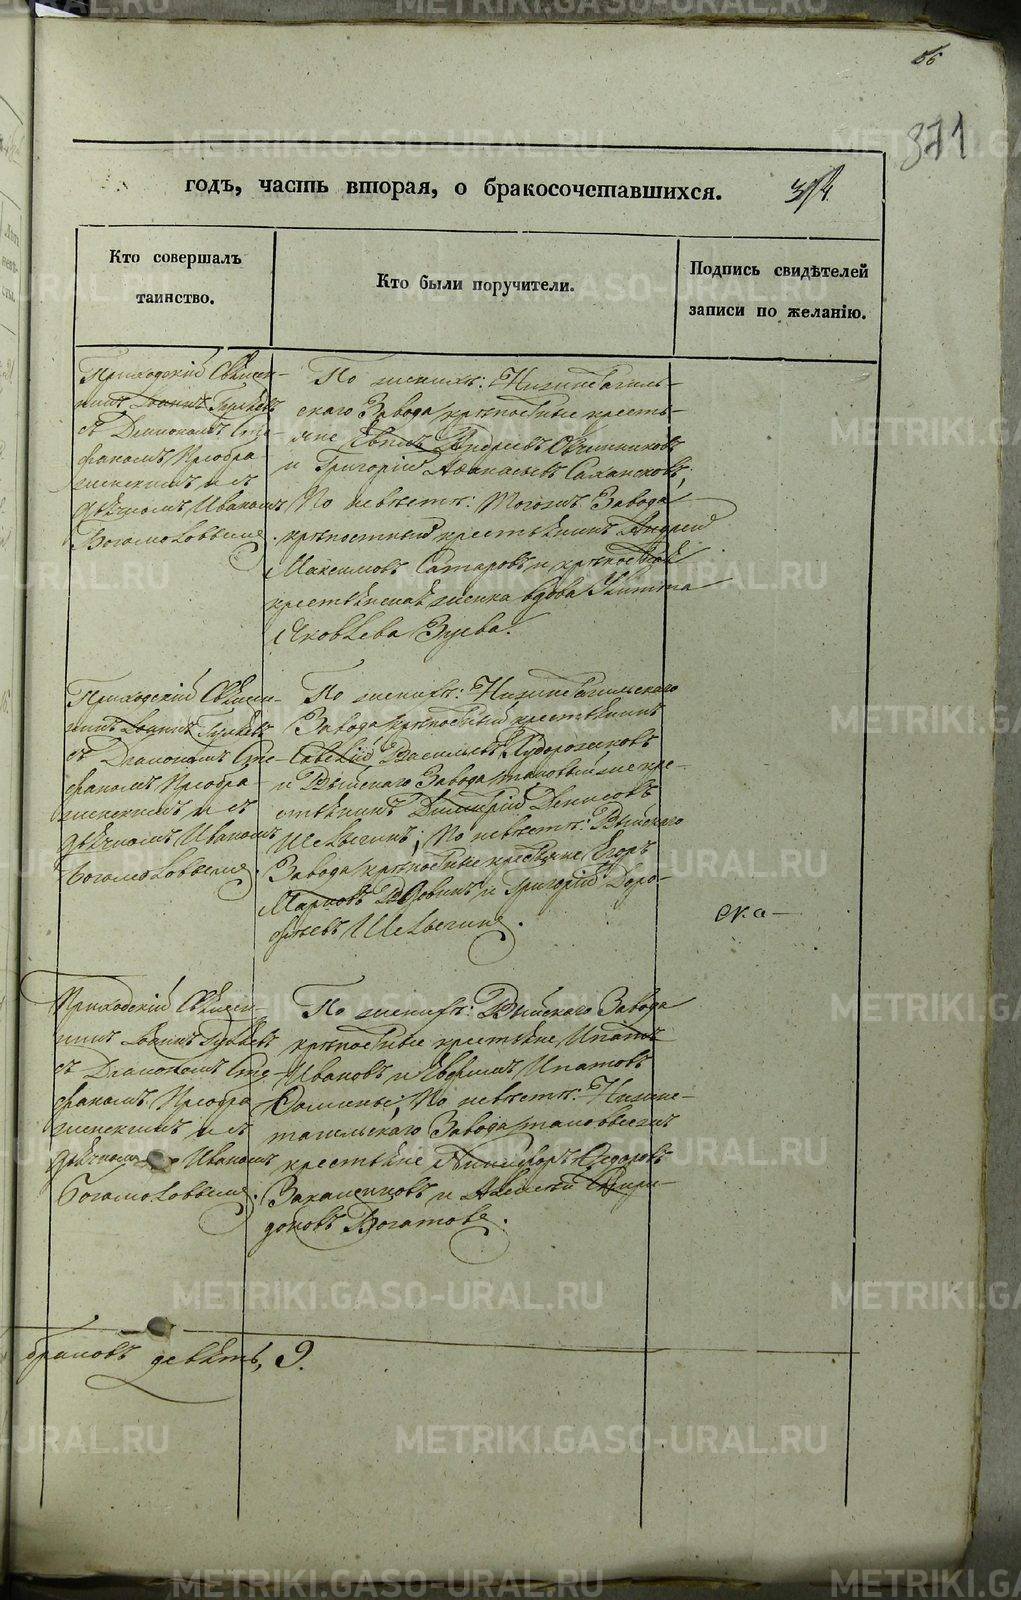 56
371
годъ, часть вторая, о бракосочетавшихся.
374
Кто совершалъ
таинство.
Кто были поручители.
Подпись свидѣтелей
записи по желанію.
Приходскій Священ-
никъ Іоаннъ
съ Діакономъ Сте-
фаномъ Преобра
женскимъ и съ
дьячкомъ Иваномъ
Богомоловымъ.
По женихѣ: Нижнетагиль-
скаго Завода крѣпостные кресть-
яне Ефимъ Андреевъ Овчинниковъ
и Григорій Аѳанасьевъ
По невѣстѣ: тогожъ Завода
крѣпостный крестьянинъ Андрей
Максимовъ Сатаровъ и крѣпостная
крестьянская женка вдова
Яковлева Зуева.
Приходскій Священ-
никъ Іоаннъ
съ Діакономъ Сте-
фаномъ Преобра
женскимъ и съ
дьячкомъ Иваномъ
Богомоловымъ.
По женихѣ: Нижнетагильскаго
Завода крѣпостный крестьянинъ
Савелій Васильевъ Худорожковъ
и Выйскаго Завода таковый же кре-
стьянинъ Димитрій Денисовъ
Шелыгинъ; По невѣстѣ: Выйскаго
Завода крѣпостные крестьяне Егоръ
Марковъ Вдовинъ и Григорій Доро-
феевъ Шелыгинъ.
ска-
Приходскій Священ-
никъ Іоаннъ
съ Діакономъ Сте-
фаномъ Преобра
женскимъ и съ
дьячкомъ Иваномъ
Богомоловымъ.
По женихѣ: Выйскаго Завода
крѣпостные крестьяне Ипатъ
Ивановъ и Ефимъ Ипатовъ
Фомины; По невѣстѣ: Нижне-
тагильскаго Завода таковыежъ
крестьяне Никифоръ Сидоровъ
и Алексѣй Спири-
доновъ Богатовъ.
браковъ девять, 9.
METRIKI.GASO-URAL.RU